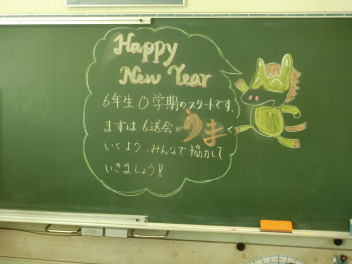 Happy
New Year
6年生0学期のスタートです。
まずは6送会がうま
いくよう、みんなで協力して
いきましょう!!